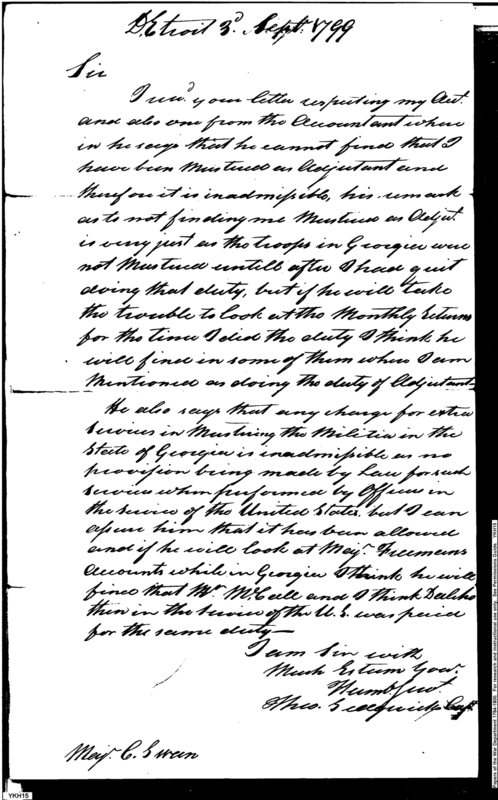 Detroit 3d. Sept. 1799
Sir
I recd. your letter respecting my Act.
and also one from the Accountant where
in he says that he cannot find that I
have been Mustered as Adjutant and
therefore it is inadmissible, his remark
as to not finding me Mustered as Adjt.
is very just as the troops in Georgia were
not Mustered untill after I had quit
doing that duty, but if he will take
the trouble to look at the Monthly Returns
for the time I did the duty I think he
will find in some of them where I am
Mentioned as doing the duty of Adjutant.
He also says that any charge for extra
Services in Mustering the Militia in the
State of Georgia is inadmissible as no
provision being made by Law for such
Services when performed by Officers in
the service of the United States, but I can
assure him that it has been allowed
and if he will look at Majr. Freemans
Accounts while in Georgia I think he will
find that Mr. McCall and I think
then in the Service of the U.S. was paid
for the same duty—
I am Sir with
Much Esteem Your
Humb. Servt.
Theo. Sedgwick Capt.
Majr. C. Swan
YKH15
Papers of the War Department 1784-1800. For research and instructional use only. See Permissions Guide. YKH15